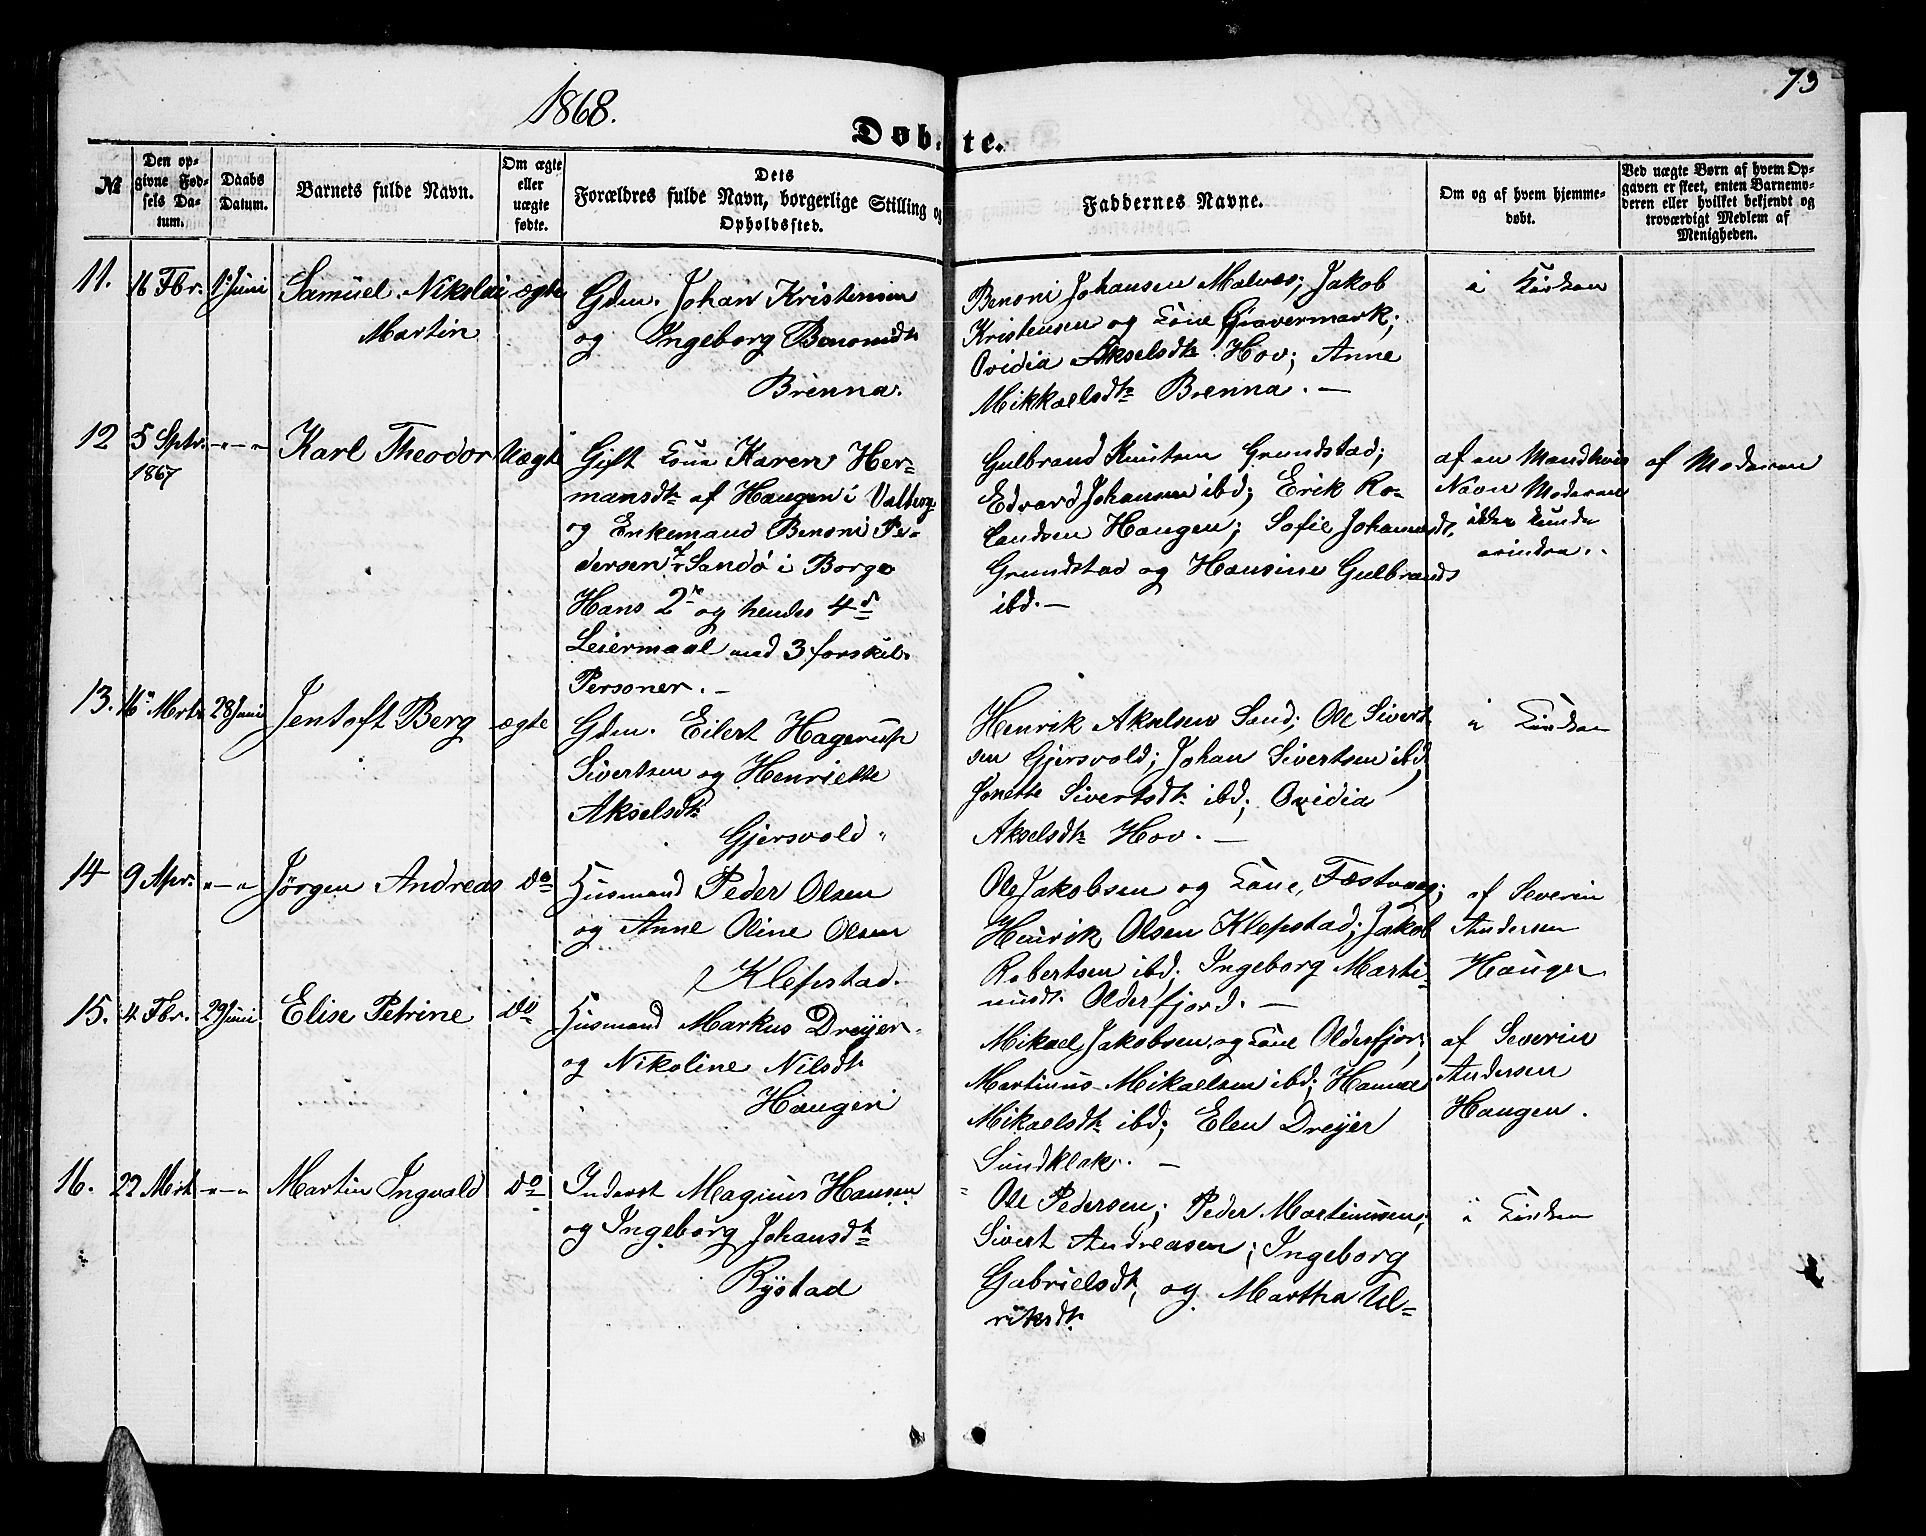 1868.
73
Døbte.
№
Den opgivne Fødsels Datum.
Daabs Datum.
Barnets fulde Navn.
Om ægte eller uægte fødte.
Dets Forældres fulde Navn, borgerlige Stilling og Opholdssted.
Faddernes Navne.
Om og af hvem hjemmedøbt.
Ved uægte Børn af hvem Opgaven er skeet, enten Barnemoderen eller hvilket bekjendt og troværdigt Medlem af Menigheden.
11. 16 Fbr. 1 Juni Samuel Nikolai ægte
Martin
Gdm. Johan Kristensen
og Ingeborg Benonidt
Brenna.
Benoni Johansen Malnes; Jakob
Kristensen og Kone Gravermark;
Ovidia Akselsdt Hov; Anne
Mikkaelsdt Brenna. —
i Kirken
12 5 Sptr. 1867 -"-" Karl Theodor Uægte
Gift Kone Karen Her-
mansdt af Haugen i Valberg
og Enkemand Benoni Pe-
dersen Sandö i Borge
Hans 2 og hendes 4d
Leiermaal med 3 forskil.
Personer. —
Gulbrand Knutsen Grundstad;
Edvard Johansen ibd; Erik Ro-
landsen Haugen; Sofie Johannesdt.
Grundstad og Hansine Gulbrands
ibd. —
af en Mand hvis
Navn Moderen
ikke kunde
erindre.
af Moderen
13. 16 Mrts 28 Juni Jentoft Berg ægte
Gdm. Eilert Hagerup
Sivertsen og Henriette
Akselsdt
Gjersvold
Henrik Akselsen Sand; Ole Sivert
sen Gjersvold; Johan Sivertsen ibd
Jonette Sivertsdt ibd; Ovidia
Akselsdt Hov. —
i Kirken
14 9 Apr. "—" Jörgen Andreas do
Husmand Peder Olsen
og Anne Oline Olsen
Klepstad.
Ole Jakobsen og Kone, Fæstvaag;
Henrik Olsen Klepstad; Jakob
Robertsen ibd; Ingeborg Marti-
nusdt. Olderfjord. —
af Severin
Andersen
Haugen
15. 4 Fbr. 29 Juni Elise Petrine do
Husmand Markus Dreyer
og Nikoline Nilsdt
Haugen
Mikael Jakobsen og Kone Olderfjor;
Martinus Mikaelsen ibd; Hanna
Mikaelsdt ibd; Elen Dreyer
Sundklak. —
af Severin
Andersen
Haugen.
16. 22 Mrt "—" Martin Ingvald do
Inderst Magnus Hansen
og Ingeborg Johansdt
Rystad
Ole Pedersen; Peder Martinusen;
Sivert Andreasen; Ingeborg
Gabrielsdt, og Martha Ul-
riksdt
i Kirken